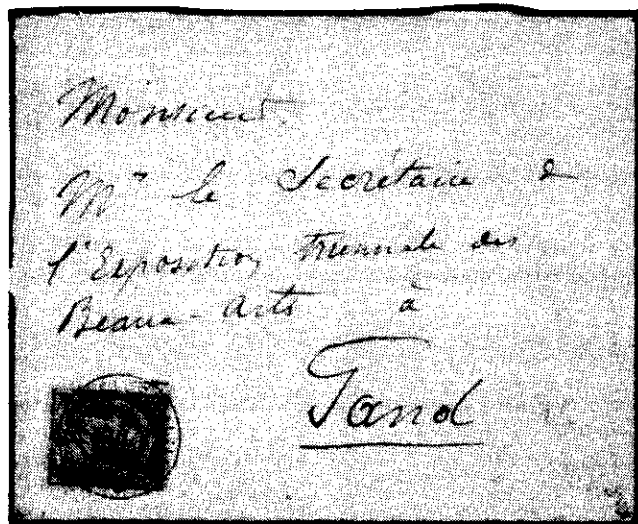 Monsieur
Mr le Secrétaire de
l'Exposition triennale des
Beaux-Arts à
Gand